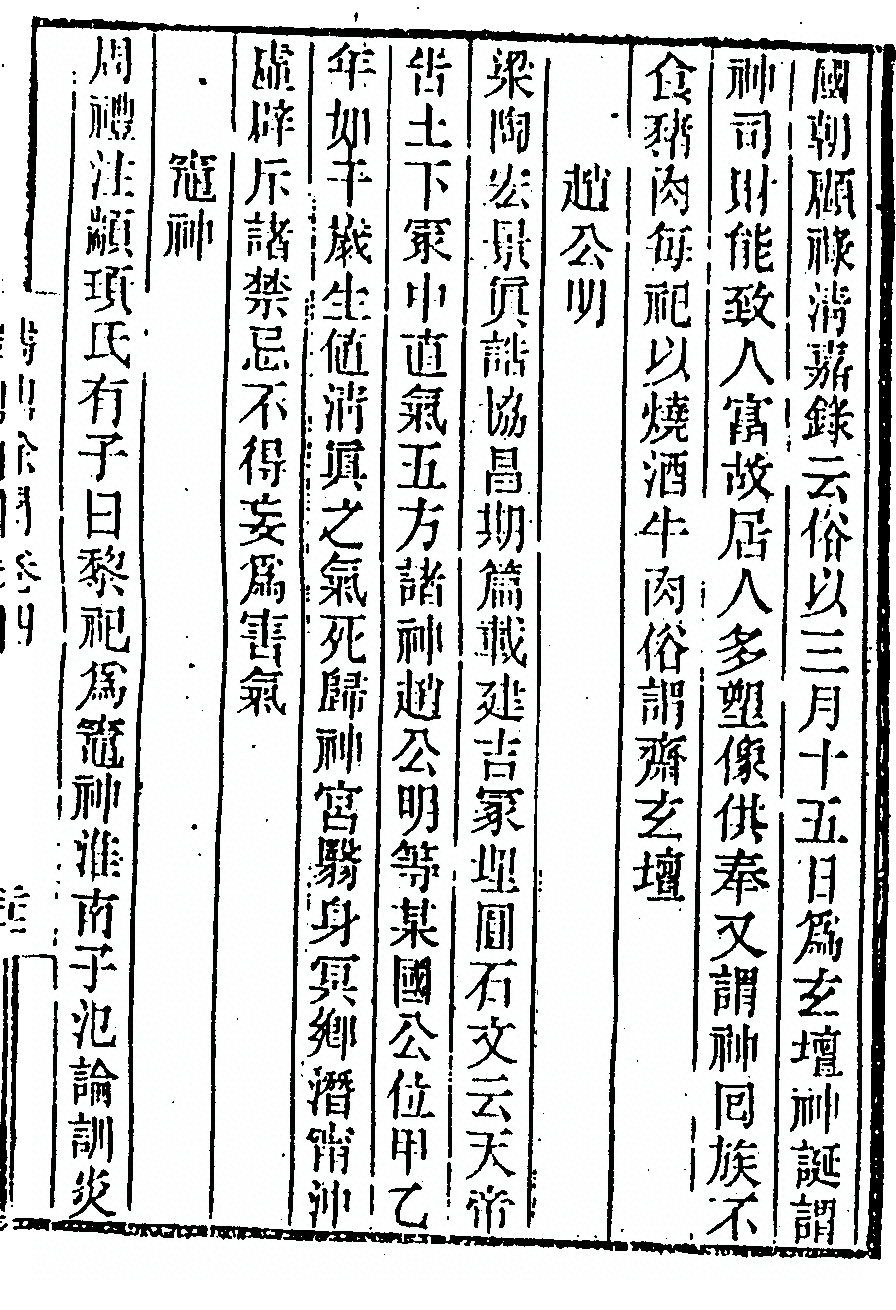 國朝顧祿淸嘉錄云俗以三月十五日爲玄壇神誕謂
神司財能致人富故居人多塑像供奉又謂神回族不
食豬肉每祀以燒酒牛肉俗謂齋玄壇
趙公明
梁陶宏景眞誥協昌期篇載建吉冢埋圓石文云天帝
告土下冢中直氣五方諸神趙公明等某國公位甲乙
年如干歲生値淸眞之氣死歸神宮翳身冥鄉潛甯沖
虛辟斥諸禁忌不得妄爲害氣
竈神
周禮注顓頊氏有子曰黎祀爲竈神淮南子氾論訓炎